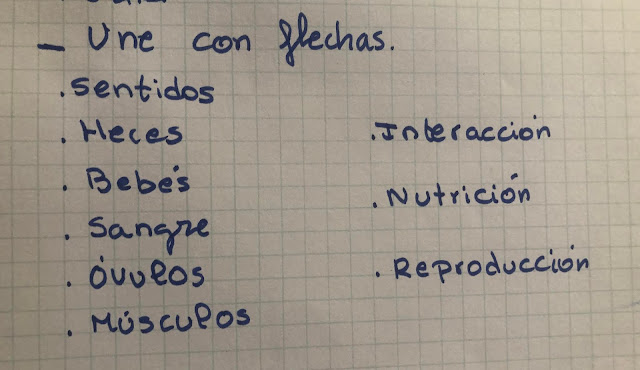 - Une con flechas.
. Sentidos
. Heces
. Interacción
. Bebés
. Nutrición
. Sangre
. Óvulos
. Reproducción
. Músculos